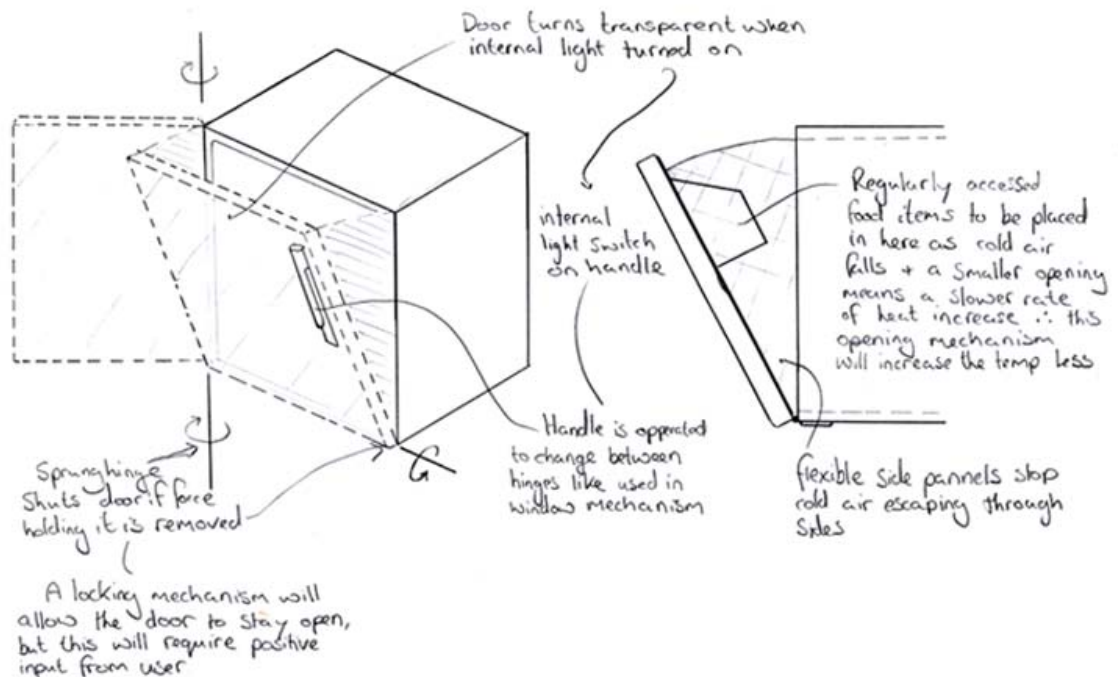 Door turns transparent when
internal light turned on
internal
light switch
on handle
Regularly accessed
food items to be placed
in here as cold air
falls + a smaller opening
means a slower rate
of heat increase ∴ this
opening mechanism
will increase the temp less
Handle is opperated
to change between
hinges like used in
window mechanism
flexible side pannels stop
cold air escaping through
sides
Sprung hinge
shuts door if force
holding it is removed
A locking mechanism will
allow the door to stay open,
but this will require positive
input from user